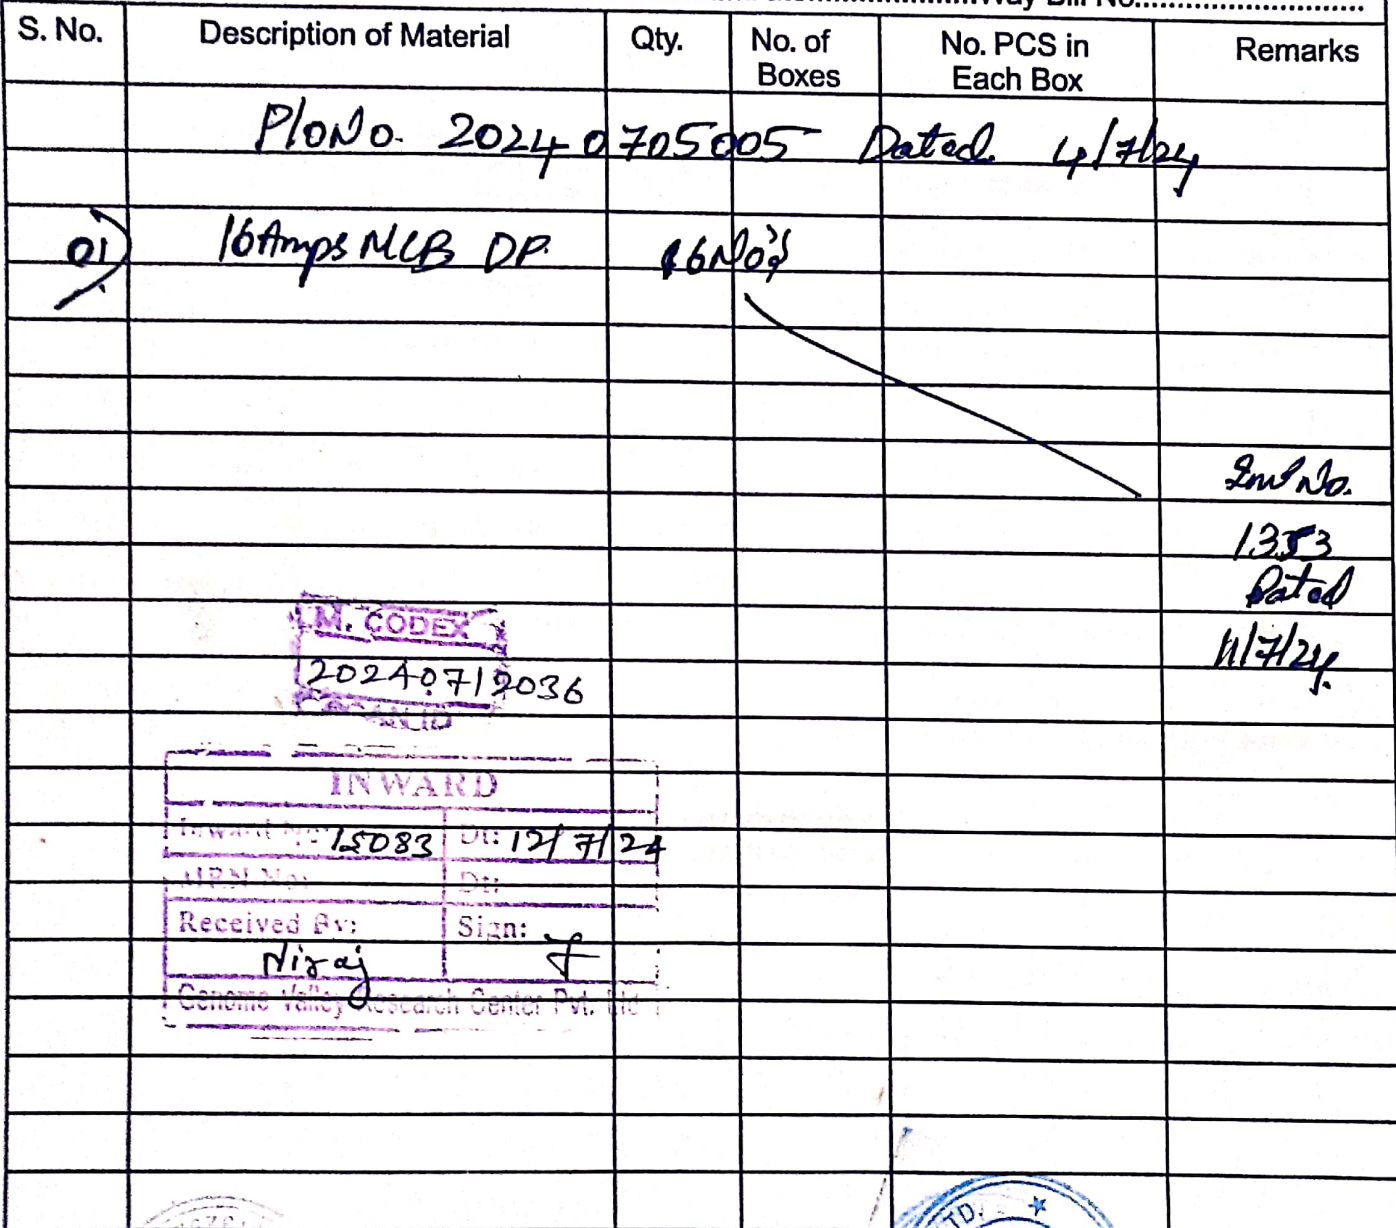 Way Bill No.
S. No. Description of Material Qty. No. of Boxes No. PCS in Each Box Remarks
P/o No. 20240705005 Dated. 4/7/24
01) 16 Amps MCB DP. 6 No's
Inv No.
1353
Dated
11/7/24.
M. CODEX
20240712036
INWARD
Inward No: 15083 Dt: 12/7/24
MRN No: Dt:
Received By: Sign:
Niraj
Genome Valley Research Center Pvt. Ltd
TD.